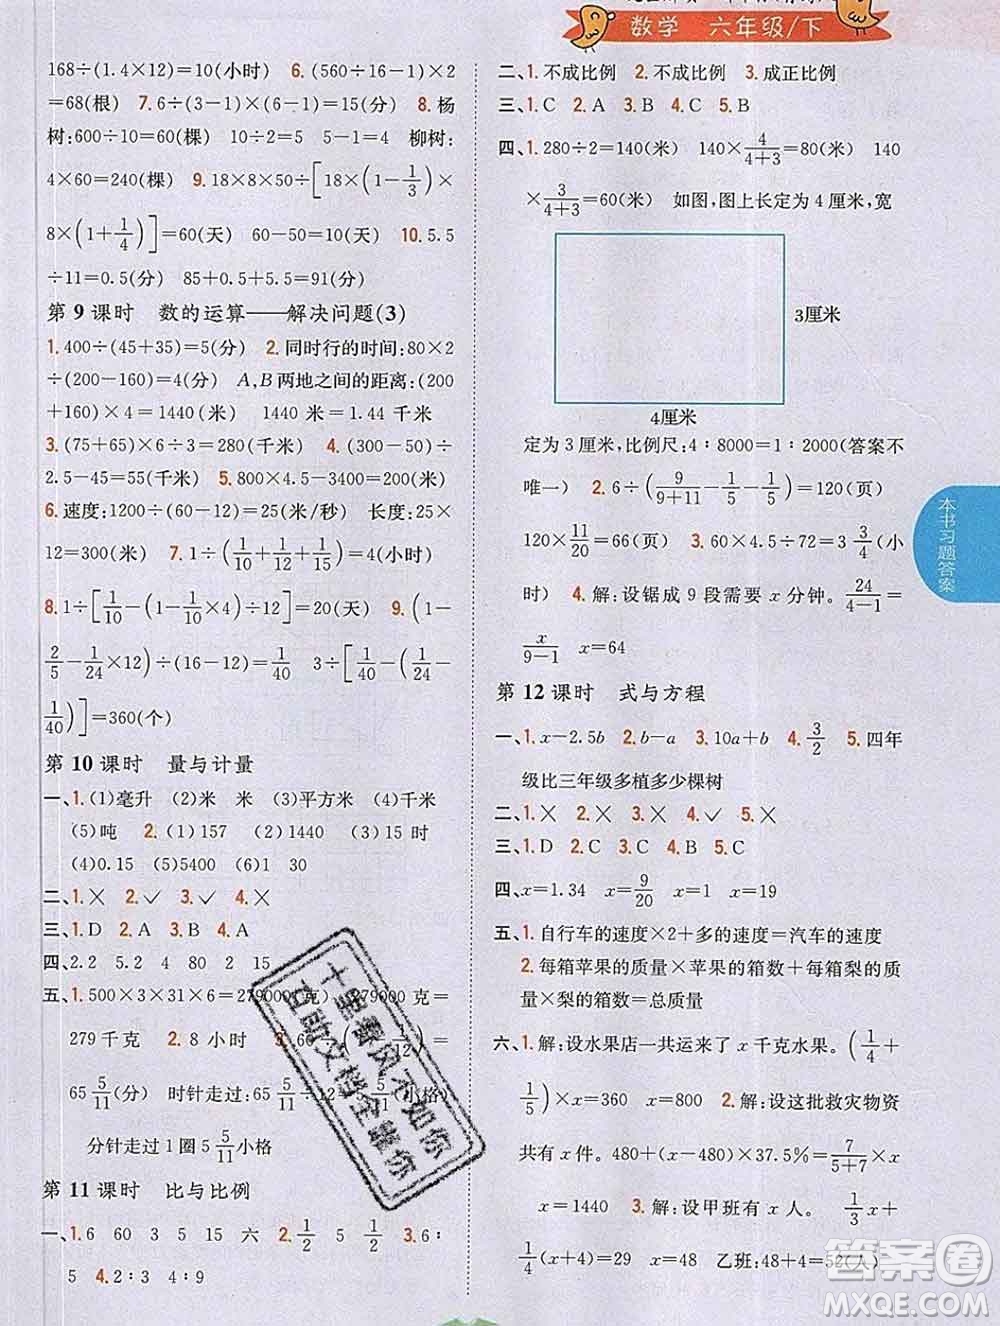 数学 六年级/下
168÷(1.4×12)=10(小时) 6.(560÷16-1)×2
=68(根) 7.6÷(3-1)×(6-1)=15(分) 8.杨
树:600÷10=60(棵) 10÷2=5 5-1=4 柳树:
4×60=240(棵) 9.18×8÷[18×(1-1/3)×
8×(1+1/4)]=60(天) 60-50=10(天) 10.5.5
÷11=0.5(分) 85+0.5+5.5=91(分)
第9课时 数的运算——解决问题(3)
1.400÷(45+35)=5(分) 2.同时行的时间:80×2
÷(200-160)=4(分) A,B两地之间的距离:(200
+160)×4=1440(米) 1440米=1.44千米
3.(75+65)×6÷3=280(千米) 4.(300-50)÷
2.5-45=55(千米) 5.800×4.5-3400=200(米)
6.速度:1200÷(60-12)=25(米/秒) 长度:25×
12=300(米) 7.1÷(1/10+1/12+1/15)=4(小时)
8.1÷[1/10-(1-1/10×4)÷12]=20(天) 9.(1-
2/5-1/24×12)÷(16-12)=1/40 3÷[1/24-(1/24-
1/40)]=360(个)
第10课时 量与计量
一、1.(1)毫升 (2)米 米 (3)平方米 (4)千米
(5)吨 2.(1)157 (2)1440 (3)15时
(4)0.15 (5)5400 (6)1 30
二、1.× 2.✓ 3.× 4.✓
三、1.D 2.A 3.B 4.A
四、2.2 5.2 4 80 2 15
五、1.500×3×31×6=279000(克) 279000克=
279千克 2.8小时
65 5/11(分) 时针走过:65 5/11÷12=5 5/11(小格)
分针走过1圈5 5/11小格
第11课时 比与比例
一、1.6 60 3 5 15 六 2.1/2 5 1/2 3.6:
5 4.2:3 4:9
二、1.不成比例 2.不成比例 3.成正比例
三、1.C 2.A 3.B 4.C 5.B
四、1.280÷2=140(米) 140×4/(4+3)=80(米) 140
×3/(4+3)=60(米) 如图,图上长定为4厘米,宽
3厘米
4厘米
定为3厘米,比例尺:4:8000=1:2000(答案不
唯一) 2.6÷(9/(9+11)-1/5-1/5)=120(页)
120×11/20=66(页) 3.60×4.5÷72=3 3/4(小
时) 4.解:设锯成9段需要x分钟。24/(4-1)=
x/(9-1) x=64
第12课时 式与方程
一、1.x-2.5b 2.b-a 3.10a+b 4.3/2 5.四年
级比三年级多植多少棵树
二、1.× 2.× 3.× 4.✓ 5.×
三、1.D 2.C 3.B 4.B 5.C
四、x=1.34 x=9/20 x=4 x=19
五、1.自行车的速度×2+多的速度=汽车的速度
2.每箱苹果的质量×苹果的箱数+每箱梨的质量
×梨的箱数=总质量
六、1.解:设水果店一共运来了x千克水果。(1/4+
1/5)×x=360 x=800 2.解:设这批救灾物资
共有x件。480+(x-480)×37.5%=7/(5+7)×x
x=1440 3.解:设甲班有x人。1/3x+
1/4(x+4)=29 x=48 乙班:48+4=52(人)
本书习题答案
十里春风不如你
互助文档全靠你
答案圈
MXQE.COM